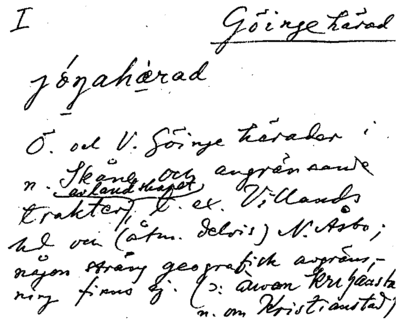 I
Göinge härad
jóŋahàrad
Ö. och V. Göinge härader i
n. Skåne och angränsande
av landskapet
trakter, t. ex. Villands
hd och (åtm. delvis) N. Åsbo;
någon sträng geografisk avgräns-
ning finns ej. (ɔ: åvan
n. om Kristianstad)